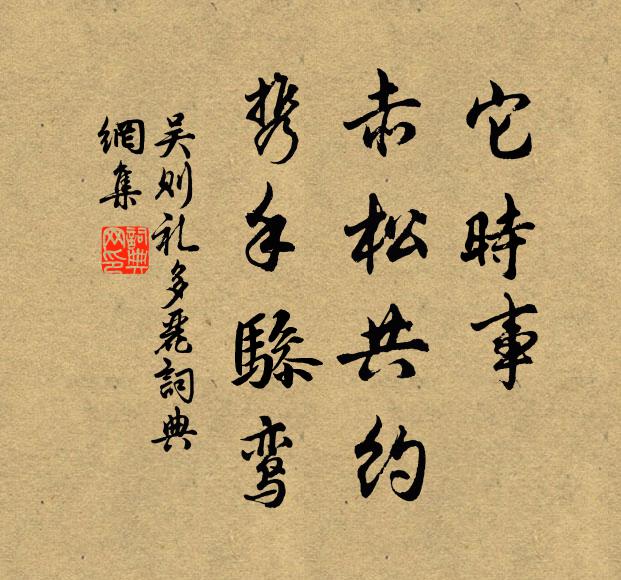 它時事
赤松共约
携手驂鸾
吴则礼多麗詞典
網集
詞典
网印